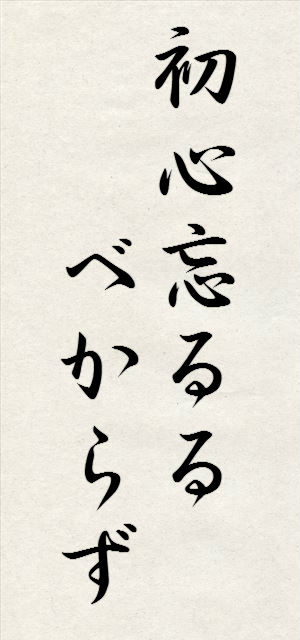 初心忘るる
べからず